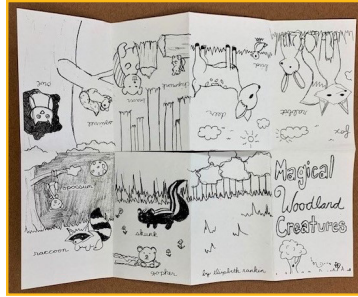 owl
squirrel
bears
chipmunk
deer
bird
rabbits
fox
opossum
raccoon
skunk
gopher
by elizabeth rankin
Magical
Woodland
Creatures